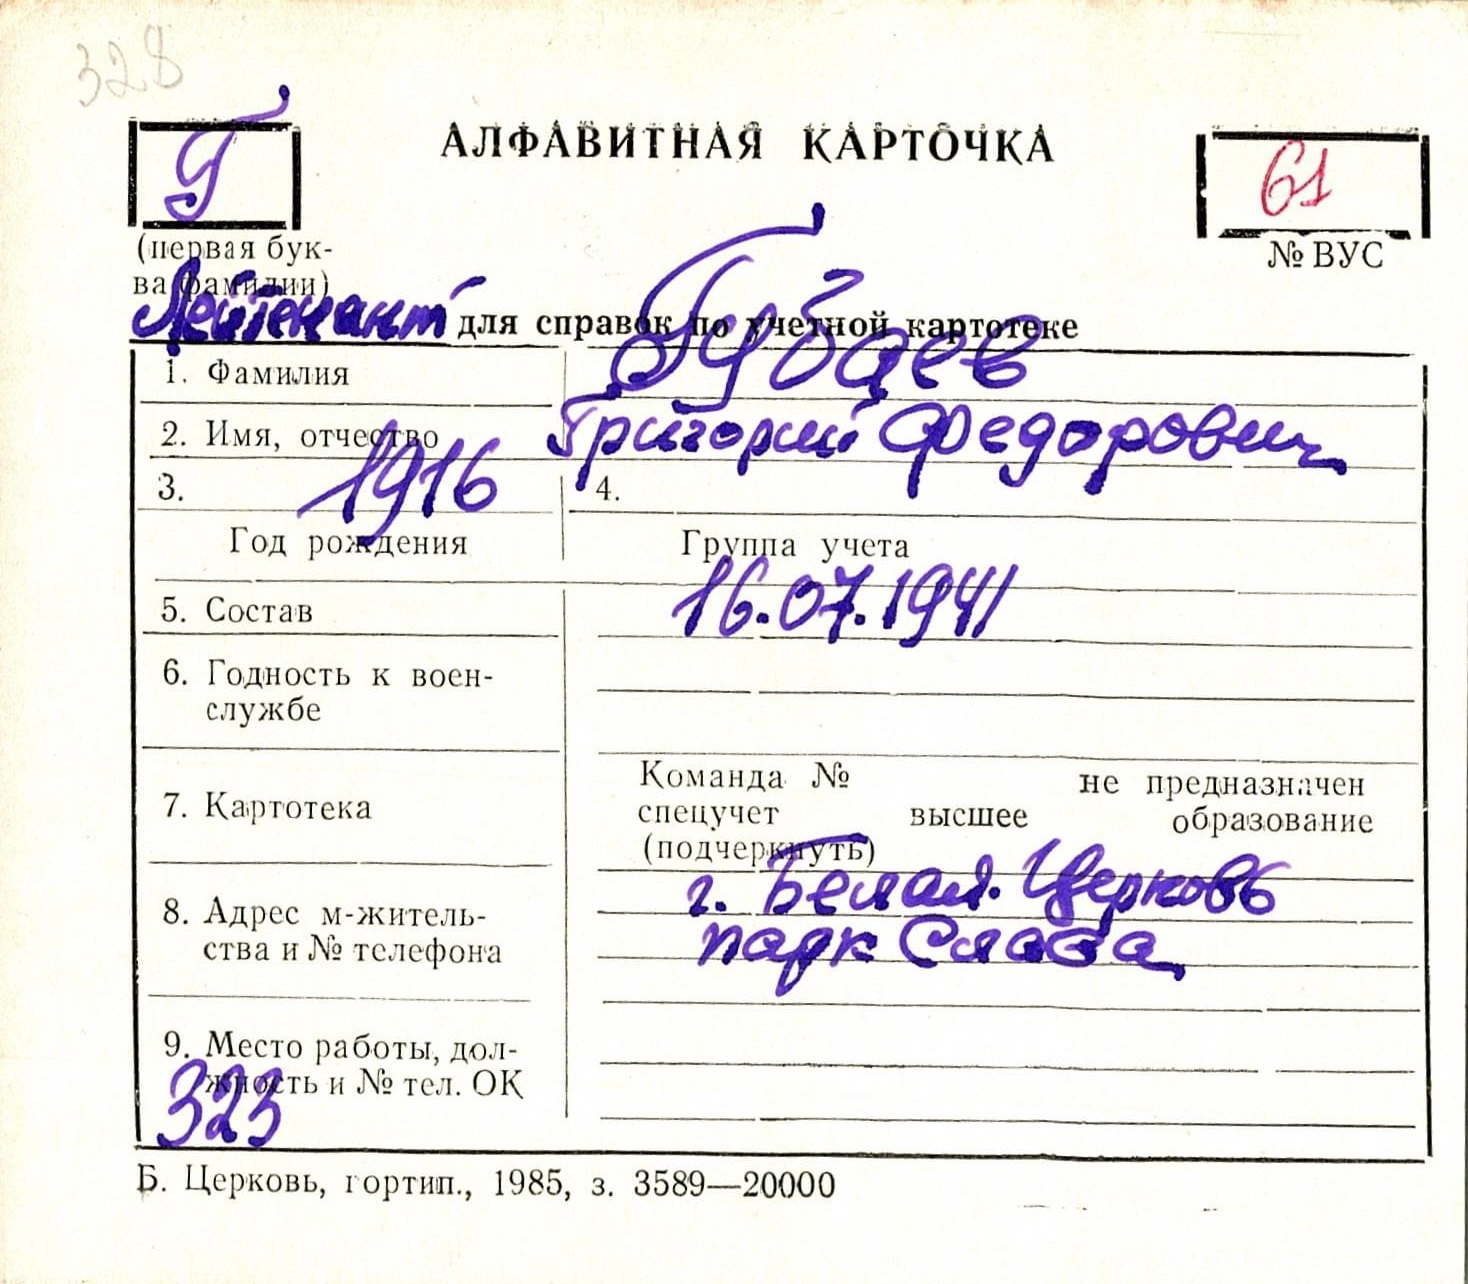 328
Г
АЛФАВИТНАЯ КАРТОЧКА
61
(первая бук-
ва фамилии)
№ ВУС
Лейтенант для справок по учетной картотеке
1. Фамилия Губаев
2. Имя, отчество Григорий Федорович
3. 1916 4.
Год рождения Группа учета
16.07.1941
5. Состав
6. Годность к воен-
службе
7. Картотека
Команда № не предназначен
спецучет высшее образование
(подчеркнуть)
8. Адрес м-житель-
ства и № телефона
г. Белая Церковь
парк Слава
9. Место работы, дол-
жность и № тел. ОК
323
Б. Церковь, гортип., 1985, з. 3589—20000